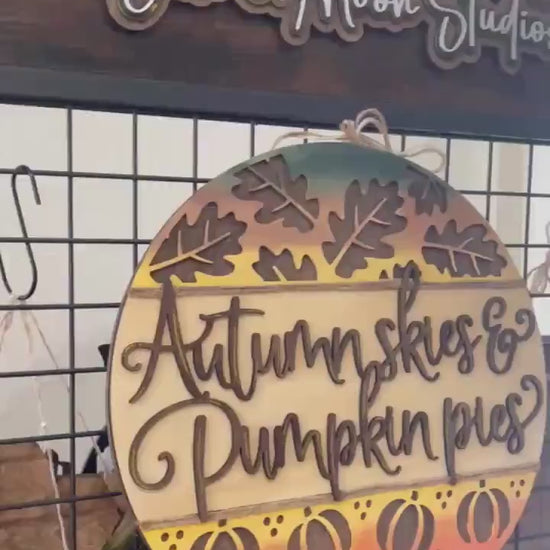 Moon Studio
Autumn skies &
Pumpkin pies